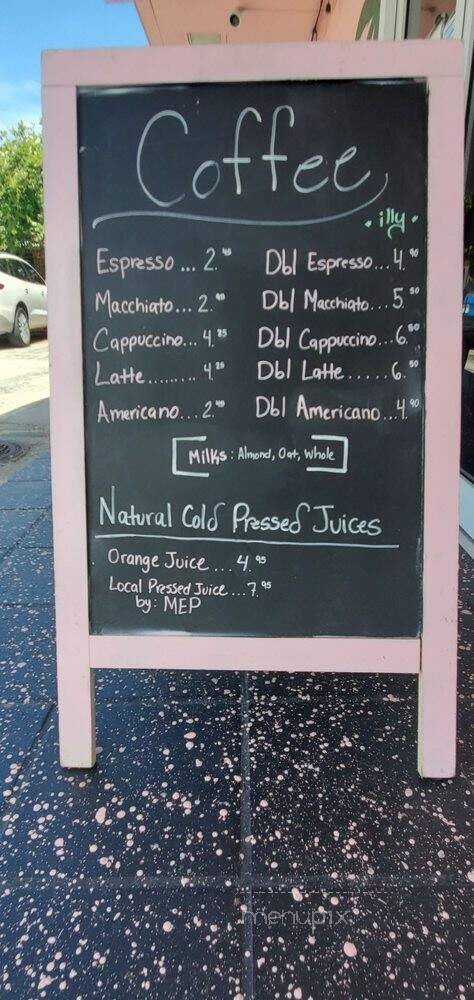 Coffee
• illy •
Espresso ... 2. Dbl Espresso... 4.90
Macchiato... 2. Dbl Macchiato... 5.50
Cappuccino... 4.25 Dbl Cappuccino...6.50
Latte......... 4.25 Dbl Latte...... 6.50
Americano... 2. Dbl Americano...4.90
[Milks: Almond, Oat, Whole]
Natural Cold Pressed Juices
Orange Juice ... 4.95
Local Pressed Juice ...7.95
by: MEP
menupix